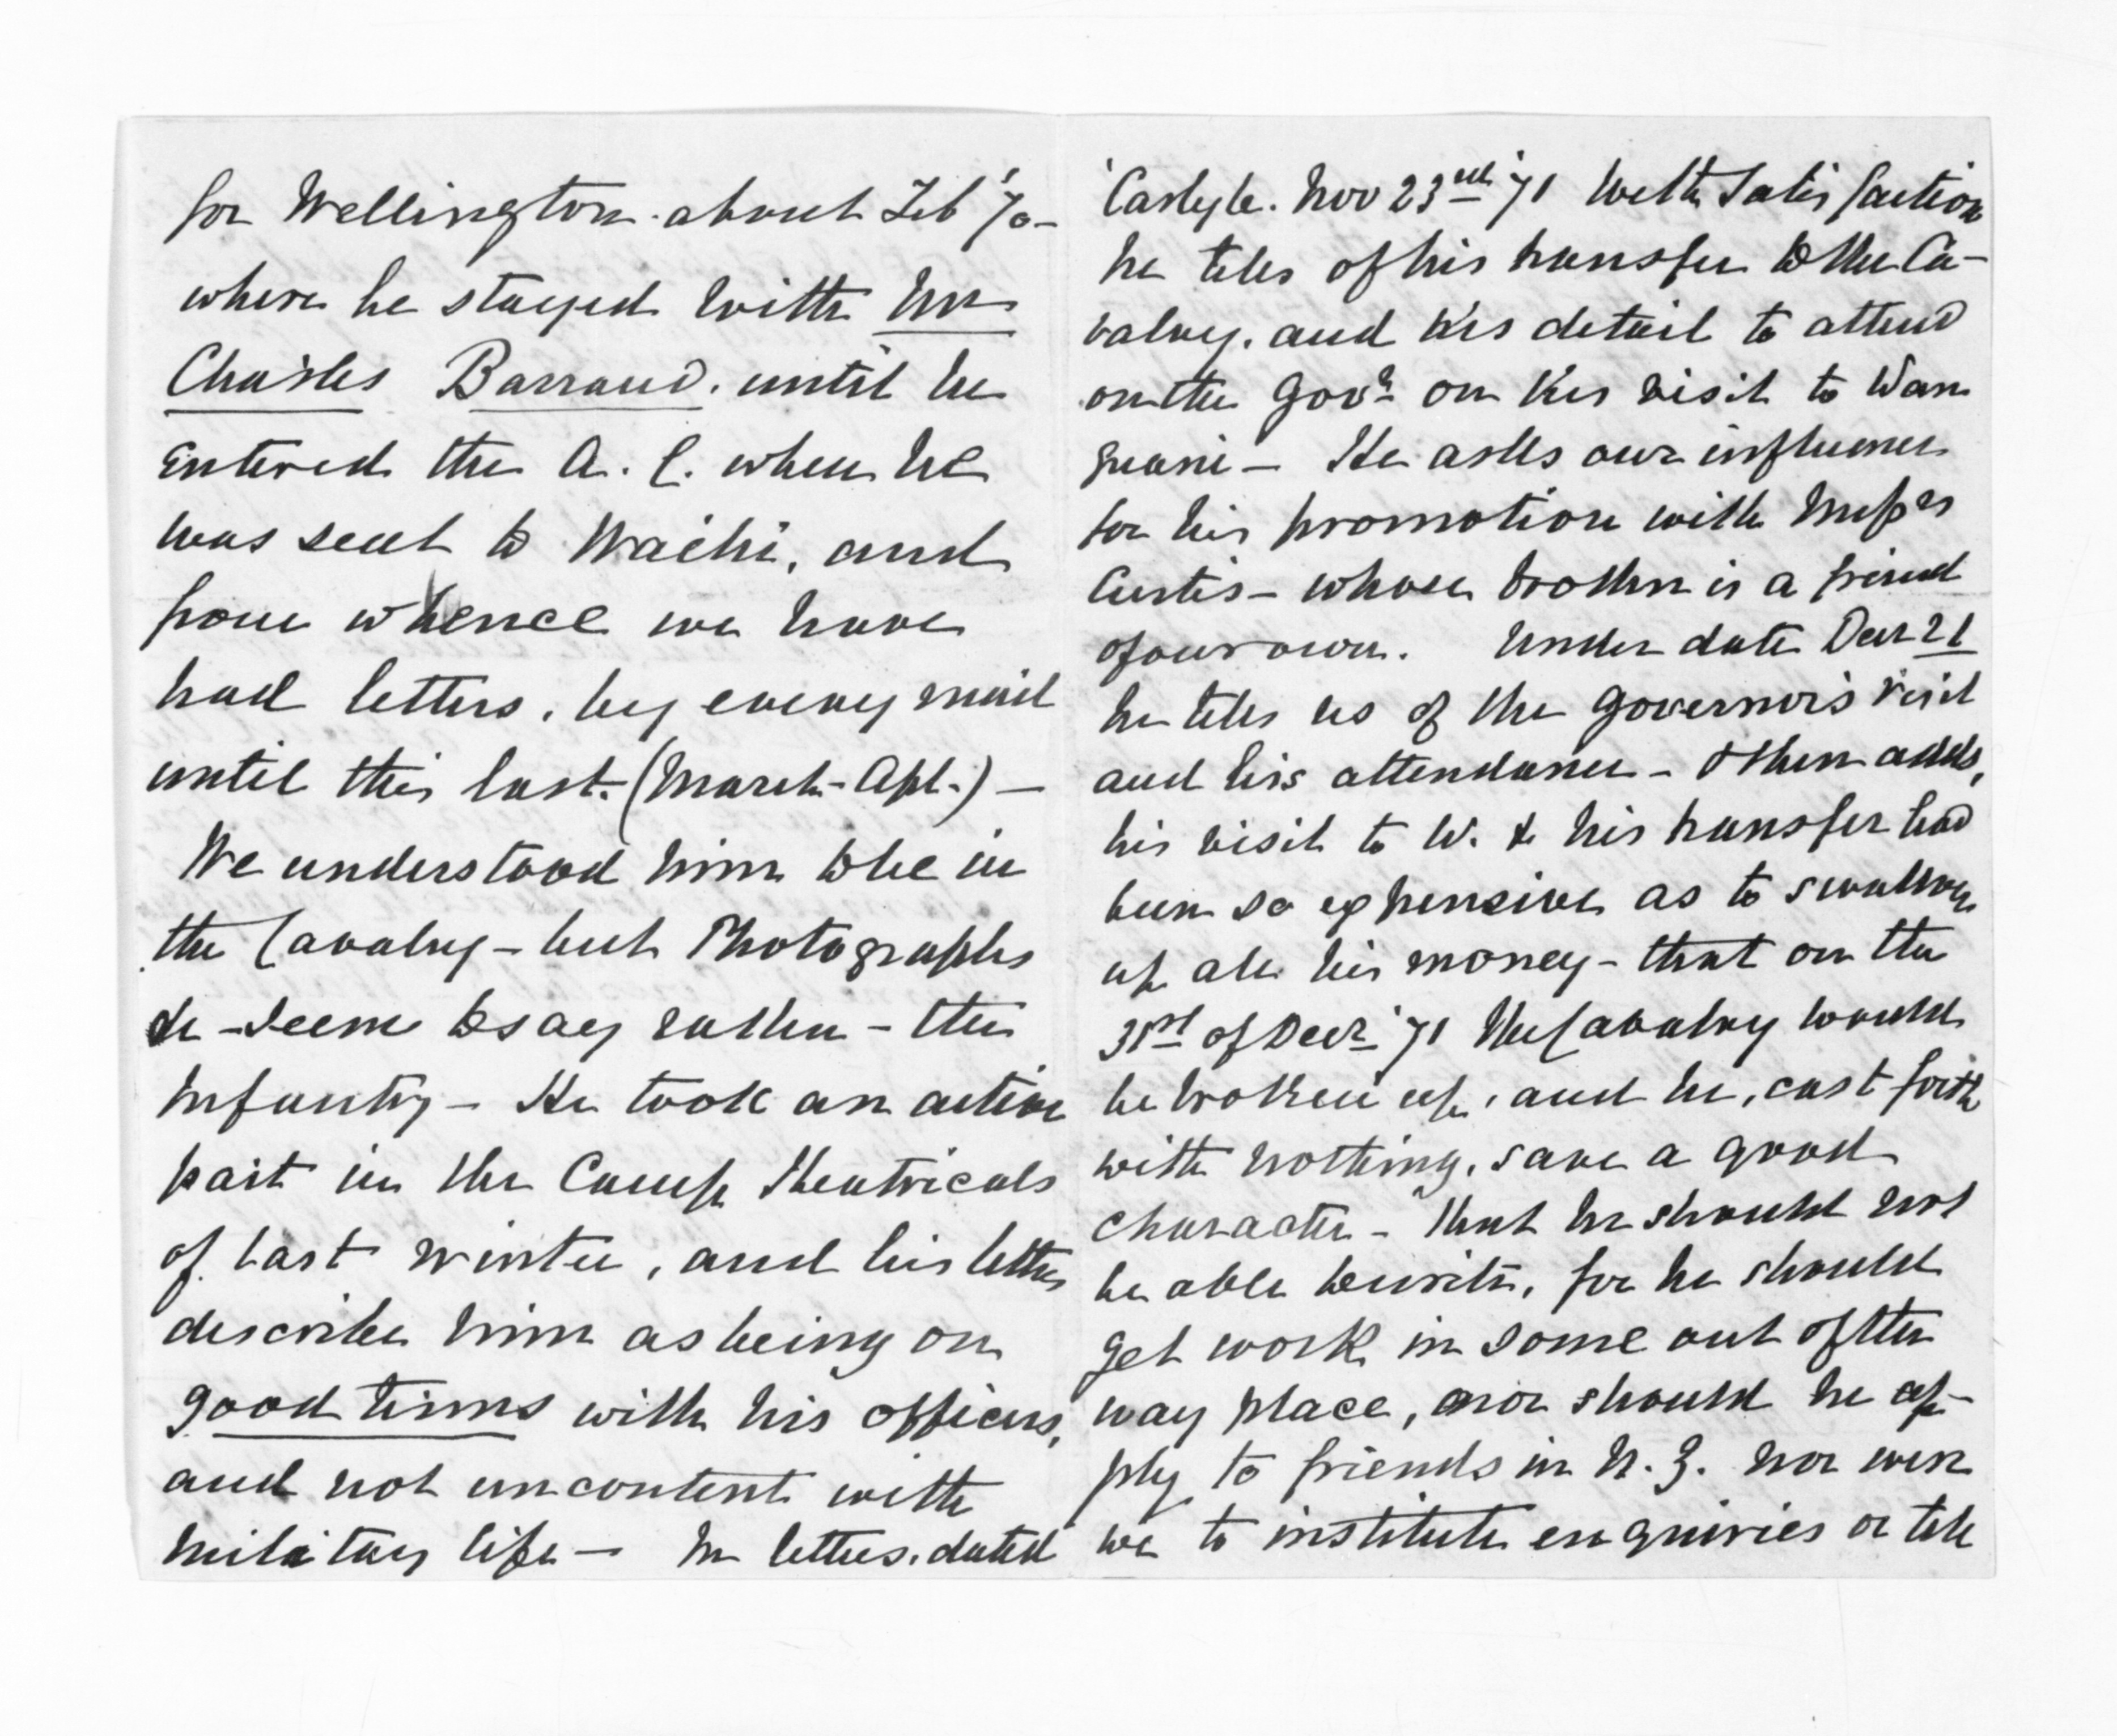 for Wellington. about Feb '70 -
where he stayed with Mr
Charles Barraud. until he
entered the A. C. when he
was sent to Waihi, and
from whence we have
had letters, by every mail
until this last. (March-Apl.) -
We understood him to be in
the Cavalry - but Photographs
- seem to say rather - the
Infantry - He took an active
part in the Camp theatricals
of last winter, and his letters
describe him as being on
good terms with his officers,
and not uncontent with
military life - In letters. dated
'Carlyle. Nov 23rd '71 With satisfaction
he tells of his transfer to the Ca-
valry. and his detail to attend
on the Govr on his visit to Wan
ganui - He asks our influence
for his promotion with Messrs
Curtis - whose brother is a friend
of our own. Under date Decr 21
he tells us of the Governor's visit
and his attendance - & then adds,
his visit to W. & his transfer had
been so expensive as to swallow
up all his money - that on the
31st of Decr '71 the Cavalry would
be broken up, and he, cast forth
with nothing, save a good
character - that he should not
be able to write, for he should
get work in some out of the
way place, nor should he ap-
ply to friends in N. Z. nor were
we to institute enquiries or tell